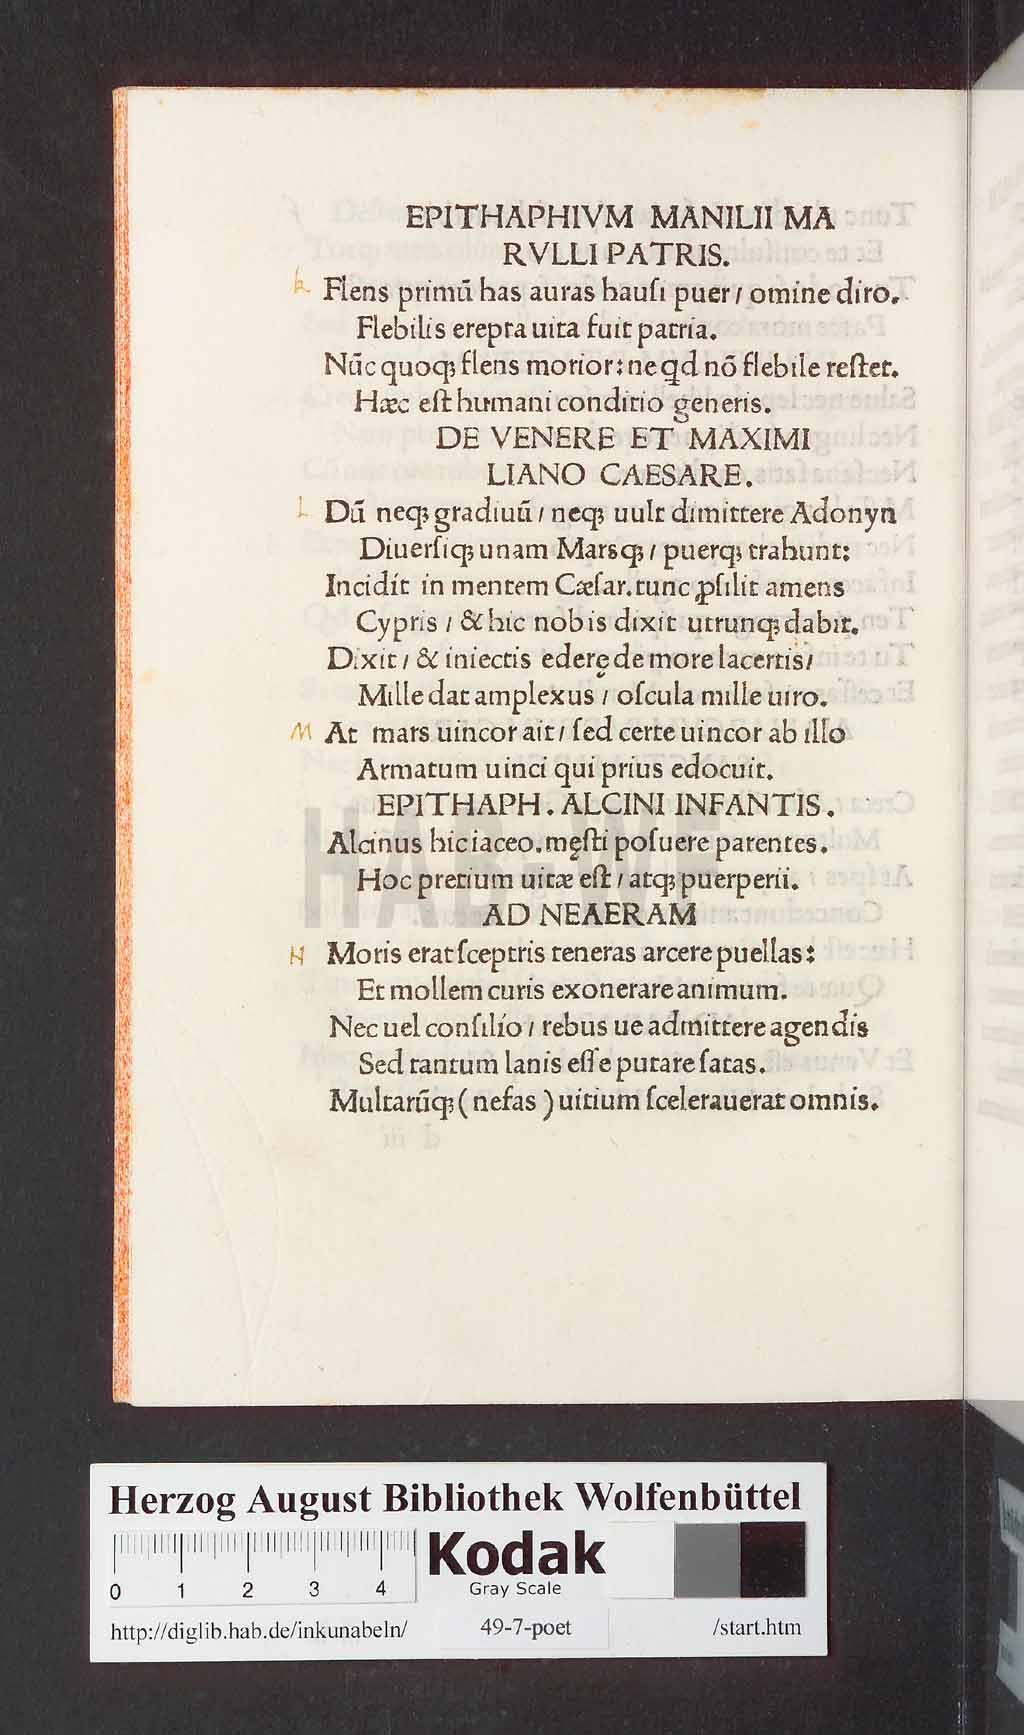 EPITHAPHIVM MANILII MA
RVLLI PATRIS.
k Flens primū has auras hauſi puer / omine diro.
Flebilis erepta uita fuit patria.
Nūc quoqꝫ flens morior: ne qd nō flebile reſtet.
Hæc eſt humani conditio generis.
DE VENERE ET MAXIMI
LIANO CAESARE.
L Dū neqꝫ gradiuū / neqꝫ uult dimittere Adonyn
Diuerſiqꝫ unam Marsqꝫ / puerqꝫ trahunt:
Incidit in mentem Cæſar. tunc ꝓſilit amens
Cypris / & hic nobis dixit utrunqꝫ dabit.
Dixit / & iniectis ederę de more lacertis /
Mille dat amplexus / oſcula mille uiro.
M At mars uincor ait / ſed certe uincor ab illo
Armatum uinci qui prius edocuit.
EPITHAPH. ALCINI INFANTIS.
Alcinus hic iaceo. męſti poſuere parentes.
Hoc pretium uitæ eſt / atqꝫ puerperii.
AD NEAERAM
N Moris erat ſceptris teneras arcere puellas:
Et mollem curis exonerare animum.
Nec uel conſilio / rebus ue admittere agendis
Sed tantum lanis eſſe putare ſatas.
Multarūqꝫ ( nefas ) uitium ſcelerauerat omnis.
HAB-WF
Herzog August Bibliothek Wolfenbüttel
0 1 2 3 4
Kodak
Gray Scale
http://diglib.hab.de/inkunabeln/ 49-7-poet /start.htm